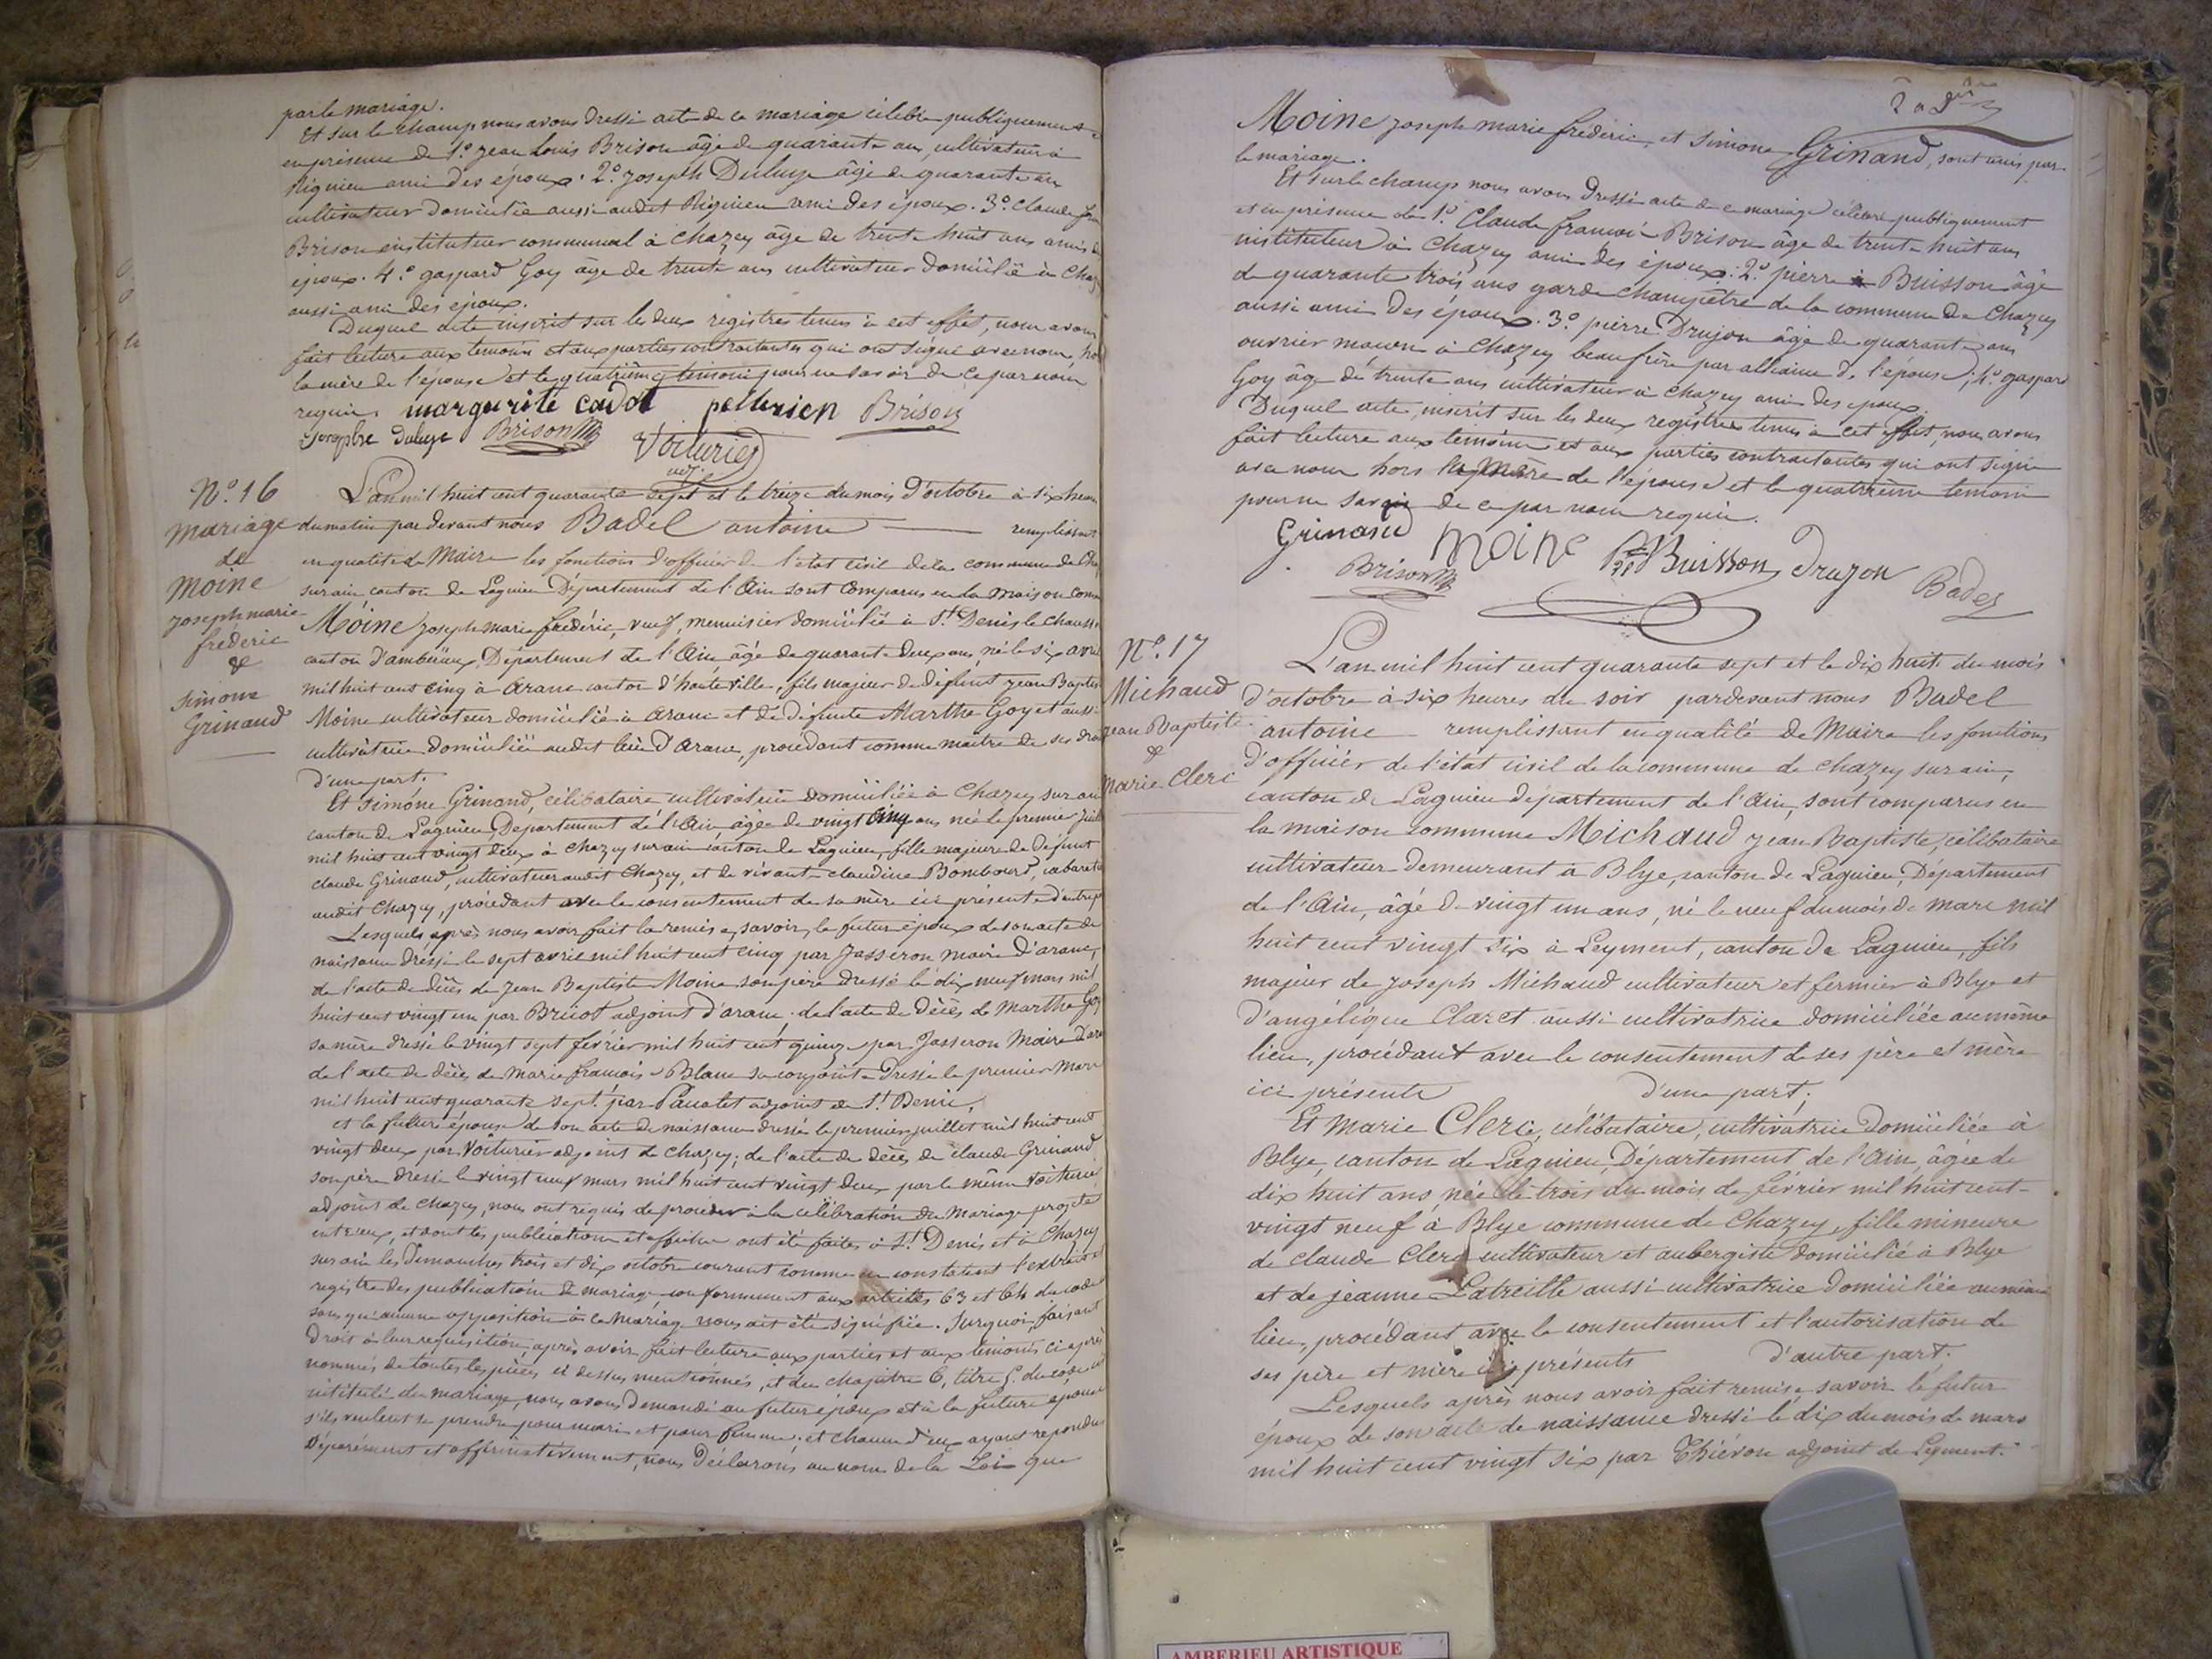 par le mariage.
Et sur le champ nous avons dressé acte de ce mariage célébré publiquement
en présence de 1.° Jean Louis Brison âgé de quarante ans, cultivateur à
Rignieu ami des époux. 2.° Joseph Duluye âgé de quarante ans
cultivateur domicilié aussi audit Rignieu ami des époux. 3.° Claude
Brison instituteur communal à Chazey âgé de trente huit ans amis
époux. 4.° gaspard Goy âgé de trente ans cultivateur domicilié à Chaz
aussi ami des époux.
Duquel acte inscrit sur les deux registres tenus à cet effet, nous avons
fait lecture aux temoins et aux parties contractantes qui ont signé avec nous, ho
la mère de l'épouse et le quatrième temoin pour ne savoir de ce par nous
requis marguerite cadot pellerien Brison
Josephe Duluye Brison Voiturier
adj.
N.° 16
mariage
de
moine
joseph marie
fréderic
&
simone
Grinand
L'an mil huit cent quarante sept et le treize du mois d'octobre à six heures
du matin par devant nous Badel antoine remplissant
en qualité de Maire les fonctions d'officier de l'état civil de la commune de Cha
sur ain canton de Lagnieu Département de l'Ain sont comparus en la maison com
Moine joseph marie fréderic, veuf, menuisier domicilié à St. Denis le chauss
canton d'ambérieux, Département de l'Ain, âgé de quarante deux ans, né le six avril
mil huit cent cinq à Aranc canton d'hauteville, fils majeur de défunt jean Baptis
Moine cultivateur domicilié à Aranc et de défunte Marthe Goyet aussi
cultivatrice domiciliée audit lieu d'Aranc, procédant comme maitre de ses dro
d'une part.
Et simone Grinand, célibataire cultivatrice domiciliée à Chazey sur ain
canton de Lagnieu, Département de l'Ain, âgée de vingt cinq ans née le premier juil
mil huit cent vingt deux à Chazey sur ain canton de Lagnieu, fille majeure de défunt
claude Grinand, cultivateur audit Chazey, et de vivante claudine Bombourd, cabaret
audit Chazey, procédant avec le consentement de sa mère ici présente d'autre p
Lesquels après nous avoir fait la remise, savoir, le futur époux de son acte de
naissance dressé le sept avril mil huit cent cinq par Jasseron maire d'aranc,
de l'acte de décès de Jean Baptiste Moine son père dressé le dix neuf mars mil
huit cent vingt un par Bricot adjoint d'aranc, de l'acte de décès de Marthe Goy
sa mère dressé le vingt sept février mil huit cent quinze par Jasseron Maire d'ara
de l'acte de décès de Marie francoise Blanc sa conjointe dressé le premier mars
mil huit cent quarante sept, par adjoint de St. Denis,
et la future épouse de son acte de naissance dressé le premier juillet mil huit cent
vingt deux par Voiturier adjoint de chazey; de l'acte de décès de claude Grinand
son père dressé le vingt neuf mars mil huit cent vingt deux par le même Voiturier
adjoint de chazey, nous ont requis de procéder à la célébration du Mariage projeté
entr'eux, et dont les publications et affiches ont été faites à St. Denis et à Chazey
sur ain les Dimanches trois et dix octobre courant comme en constatent l'extrait
registre des publications de mariage conformément aux articles 63 et 64 du code
sans qu'aucune opposition à ce mariage nous ait été signifiée. Surquoi, faisant
droit à leur requisition, après avoir fait lecture aux parties et aux témoins ci après
nommés de toutes les pièces ci dessus mentionnées, et du chapitre 6, titre 5. du code civil
intitulé du mariage, nous avons demandé au futur époux et à la future épouse
s'ils veulent se prendre pour mari et pour femme, et chacun d'eux ayant répondu
séparément et affirmativement, nous déclarons au nom de la Loi que
Moine joseph marie fréderic, et simone Grinand, sont unis par
le mariage.
Et sur le champ nous avons dressé acte de ce mariage célébré publiquement
et en présence de 1.° Claude francois Brison âgé de trente huit ans
instituteur à Chazey ami des époux. 2.° pierre Buisson âgé
de quarante trois ans garde champêtre de la commune de Chazey
aussi ami des époux. 3.° pierre Drujon âgé de quarante ans
ouvrier macon à Chazey beau frère par alliance de l'épouse; 4.° gaspard
Goy âgé de trente ans cultivateur à Chazey ami des époux.
Duquel acte, inscrit sur les deux registres tenus à cet effet, nous avons
fait lecture aux témoins et aux parties contractantes qui ont signé
avec nous hors la mère de l'épouse et le quatrième temoin
pour ne savoir de ce par nous requis.
Grinand moine Buisson Drujon
Brison Badel
N.° 17
Michaud
jean Baptiste
&
Marie Clerc
L'an mil huit cent quarante sept et le dix huit du mois
d'octobre à six heures du soir pardevant nous Badel
antoine remplissant en qualité de Maire les fonctions
d'officier de l'état civil de la commune de chazey sur ain,
canton de Lagnieu département de l'Ain, sont comparus en
la maison commune Michaud jean Baptiste, célibataire
cultivateur demeurant à Blye, canton de Lagnieu, Département
de l'Ain, âgé de vingt un ans, né le neuf du mois de mars mil
huit cent vingt six à Leyment, canton de Lagnieu, fils
majeur de joseph Michaud cultivateur et fermier à Blye et
d'angélique Claret aussi cultivatrice domiciliée au même
lieu, procédant avec le consentement de ses père et mère
ici présents d'une part;
Et Marie Clerc, célibataire, cultivatrice domiciliée à
Blye, canton de Lagnieu, Département de l'Ain, âgée de
dix huit ans née le trois du mois de février mil huit cent
vingt neuf à Blye commune de Chazey, fille mineure
de claude Clerc cultivateur et aubergiste domicilié à Blye
et de jeanne Latreille aussi cultivatrice domiciliée au même
lieu, procédant avec le consentement et l'autorisation de
ses père et mère ici présents d'autre part.
Lesquels après nous avoir fait remise, savoir le futur
époux de son acte de naissance dressé le dix du mois de mars
mil huit cent vingt six par Thiévon adjoint de Leyment.
AMBERIEU ARTISTIQUE